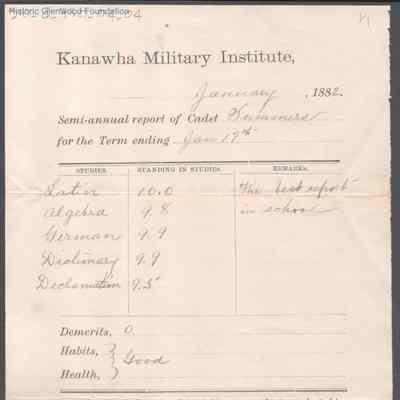 Historic Glenwood Foundation
Kanawha Military Institute,
January, 1882.
Semi-annual report of Cadet Summers
for the Term ending Jan 19th
STUDIES. STANDING IN STUDIES. REMARKS.
Latin 10.0 The best report
Algebra 9.8 in school
German 9.9
Dictionary 9.9
Declamation 9.5
Demerits, 0.
Habits, } Good
Health, }